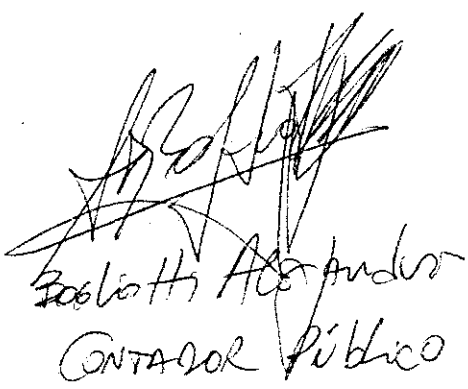 Bogliotti Alexander
CONTADOR Público